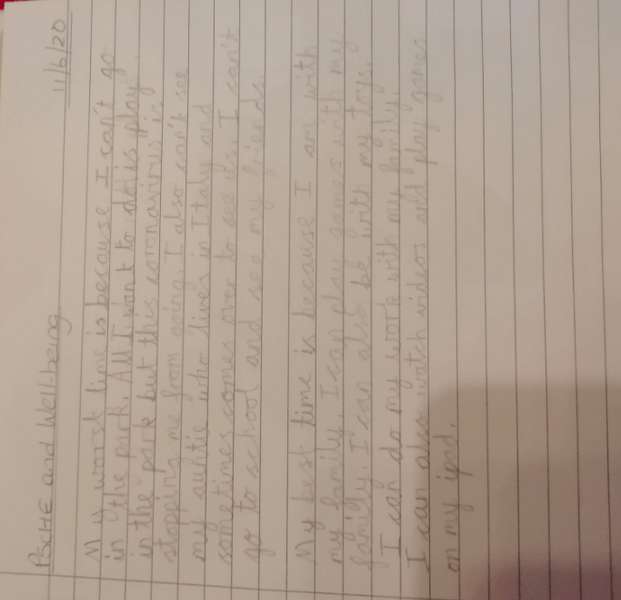 PSCHE and Well-being 11/6/20
My worst time is because I can't go
in the park. All I want to do is play
in the park but this coronavirus is
stopping me from going. I also can't see
my auntie who lives in Italy and
sometimes comes over to see us. I can't
go to school and see my friends.
My best time is because I am with
my family. I can play games with my
family. I can also be with my toys.
I can do my work with my family.
I can also watch videos and play games
on my ipad.